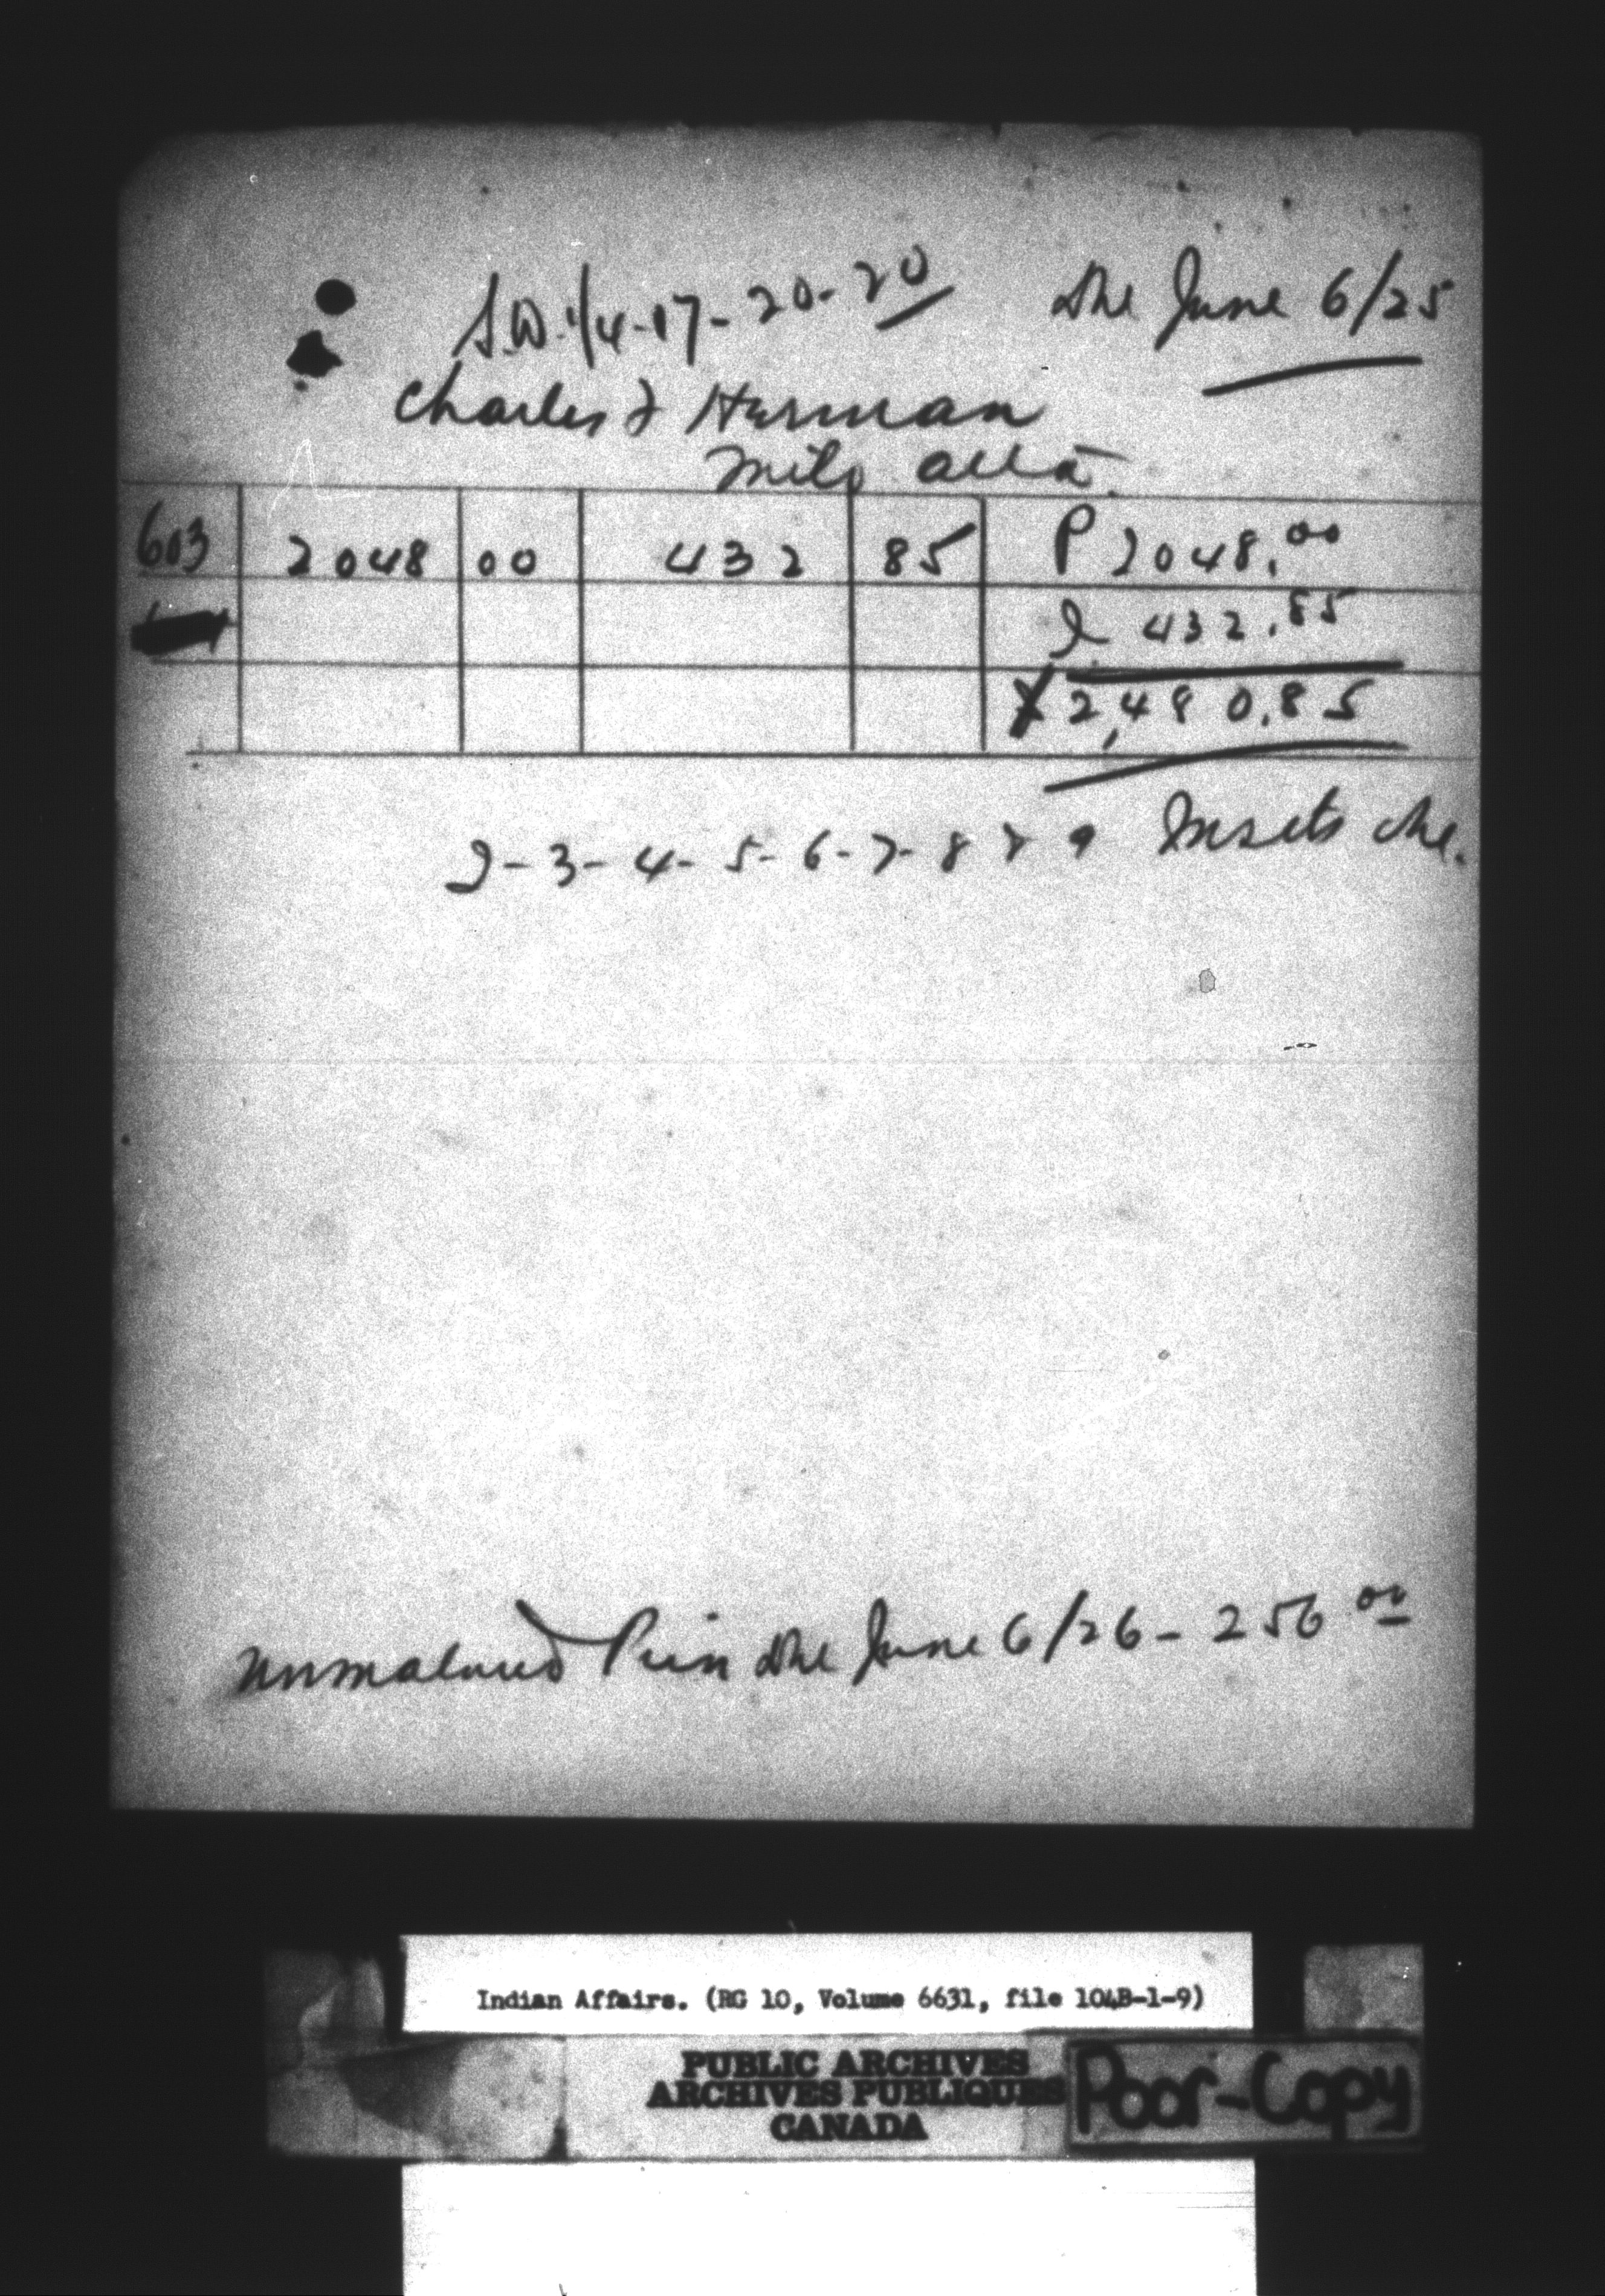 S.W. 1/4-17-20-20 Due June 6/25
Charles F Herman
Milo Alta.
603 2048 00 432 85 P 2048.00
I 432.85
2,480.85
2-3-4-5-6-7-8 & 9 Insets due.
Unmatured Prin due June 6/26 - 256 00
Indian Affairs. (RG 10, Volume 6631, file 104B-1-9)
PUBLIC ARCHIVES
ARCHIVES PUBLIQUES
CANADA
Poor-Copy